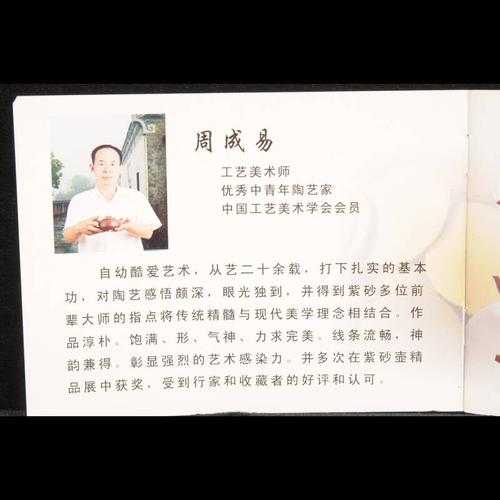 周成易
工艺美术师
优秀中青年陶艺家
中国工艺美术学会会员
自幼酷爱艺术，从艺二十余载，打下扎实的基本
功，对陶艺感悟颇深，眼光独到，并得到紫砂多位前
辈大师的指点将传统精髓与现代美学理念相结合。作
品淳朴。饱满、形、气神、力求完美。线条流畅，神
韵兼得。彰显强烈的艺术感染力。并多次在紫砂壶精
品展中获奖，受到行家和收藏者的好评和认可。